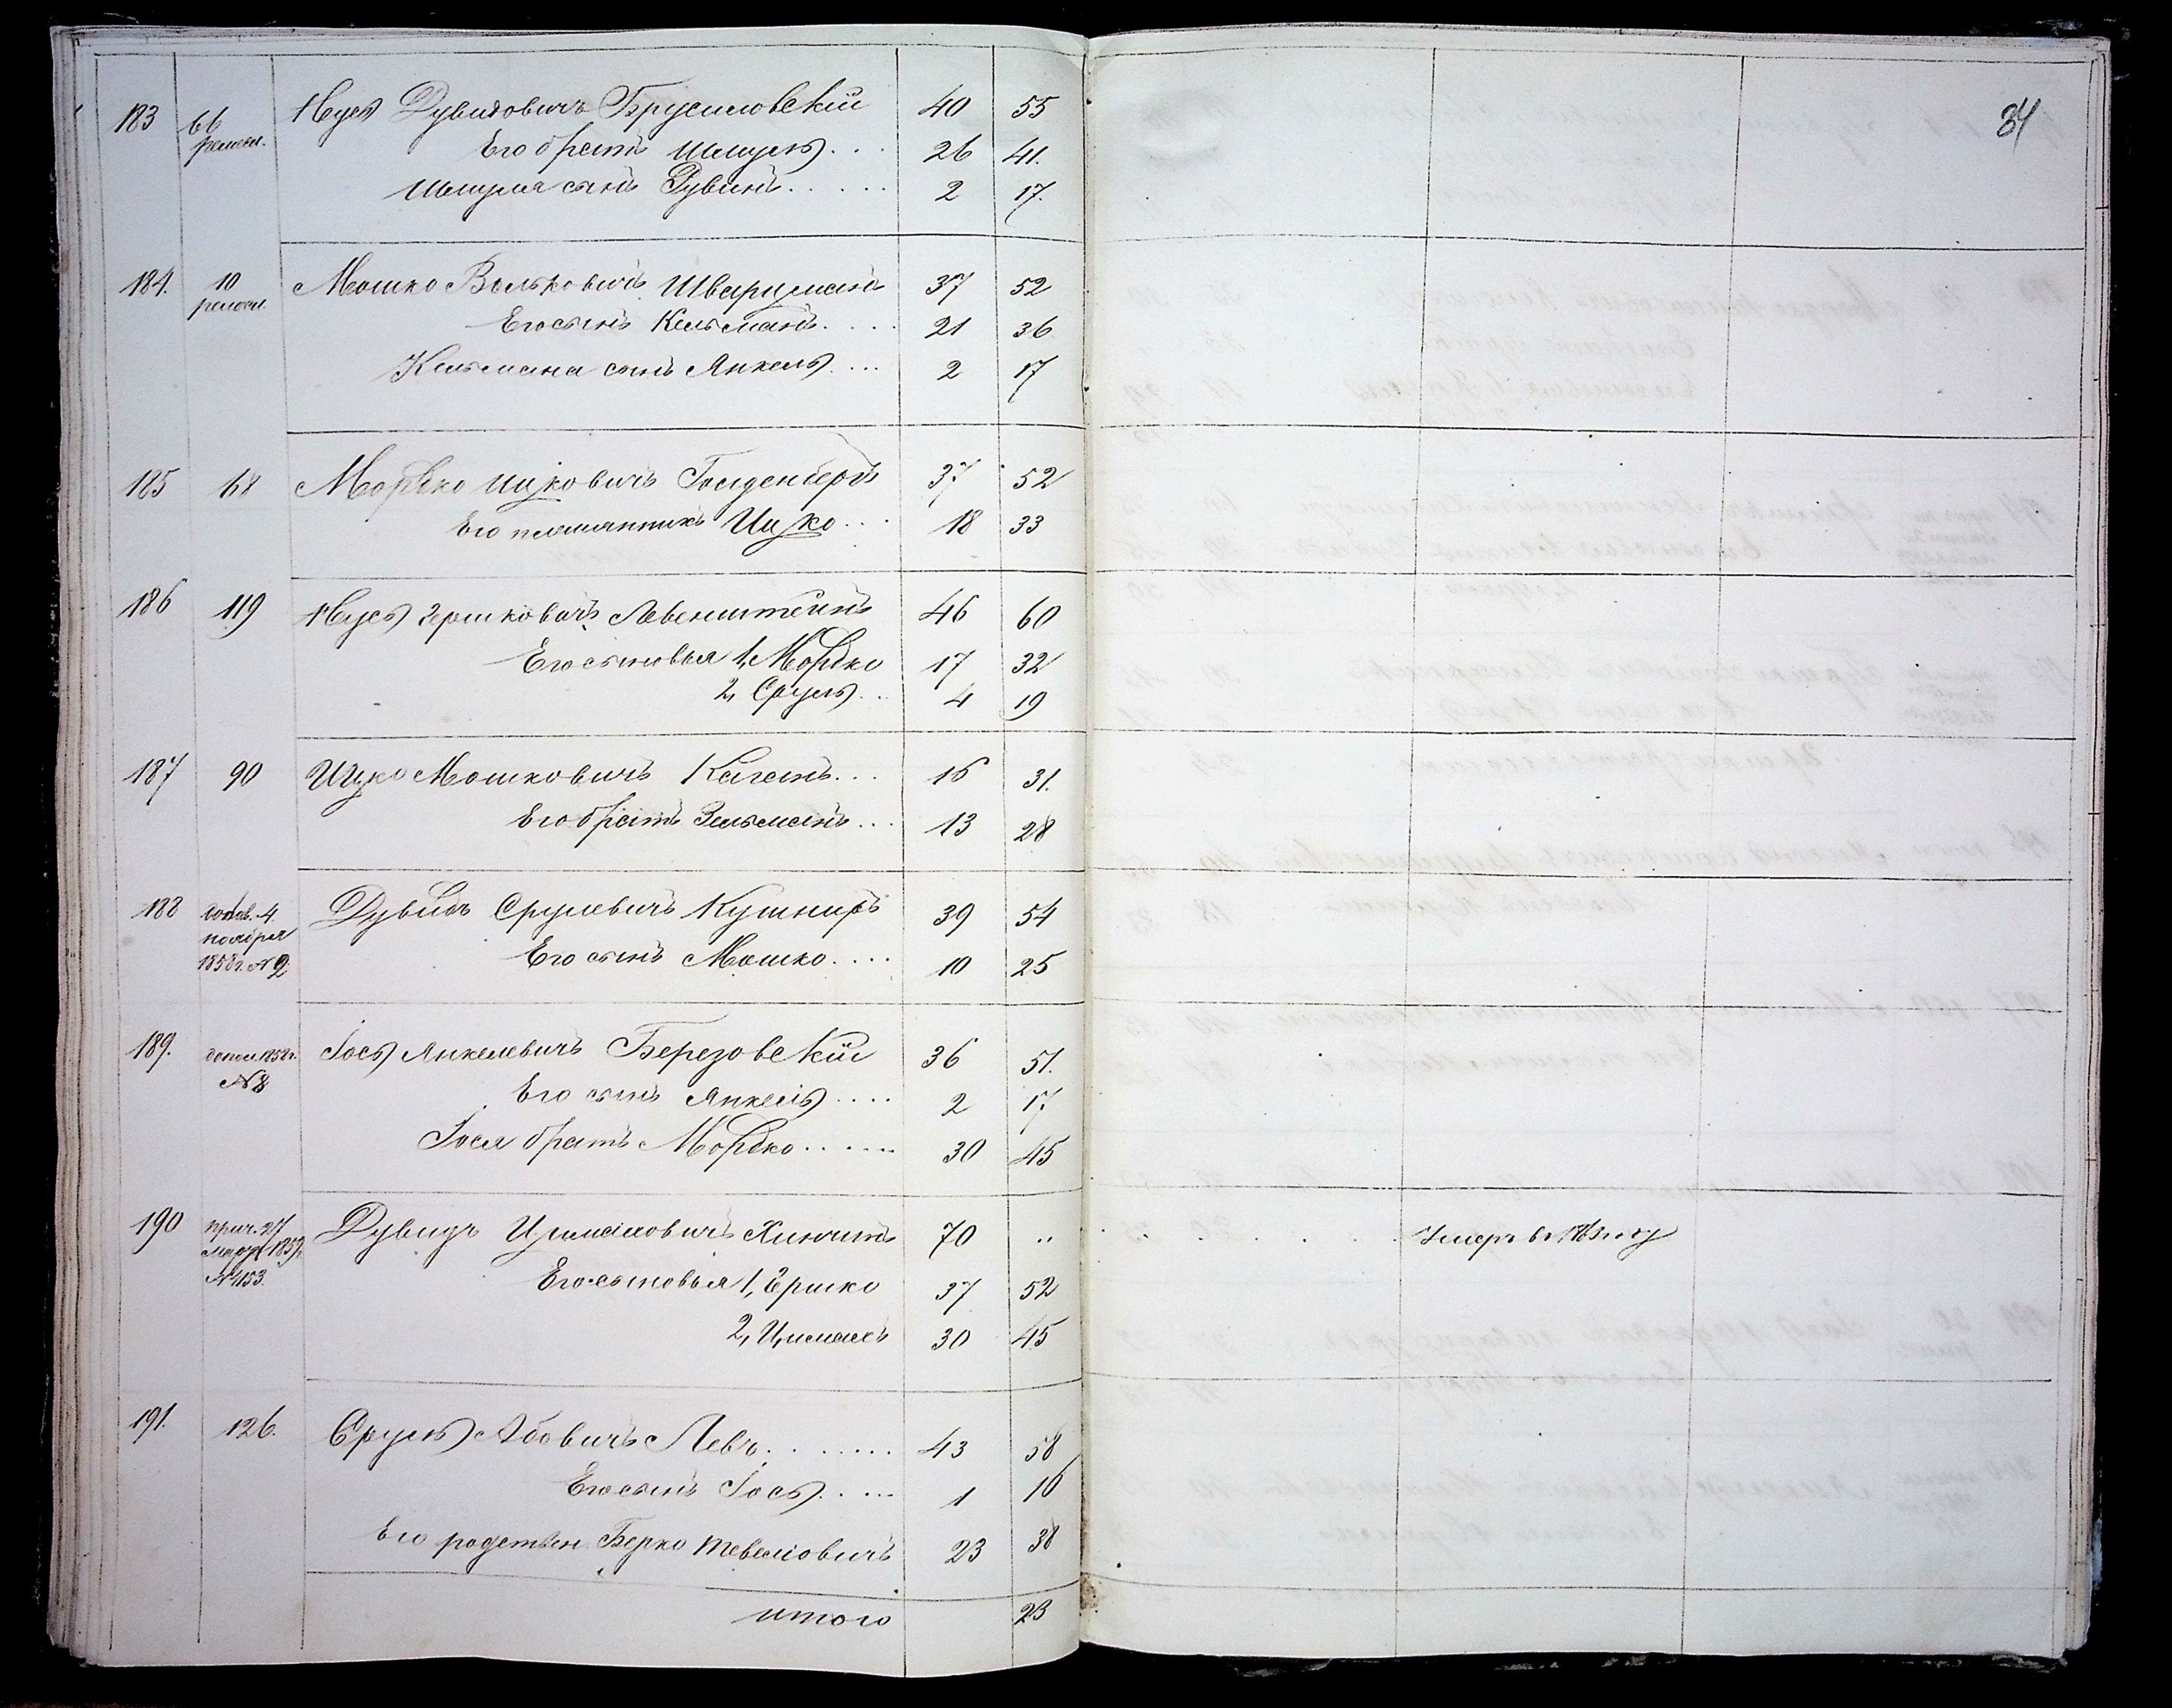 84
183 66 Нусь Дувидовичъ Брусиловскій 40 55
ремесл. Его братъ Шмуль . . . 26 41.
Шмуля сынъ Рувинъ . . . . . 2 17.
184. 10 Мошко Вольковичъ Шварцманъ 37 52
ремесл. Его сынъ Кельманъ . . . . 21 36
Кельмана сынъ Янкель . . . 2 17
185 68 Мордко Ицковичъ Голденбергъ 37 52
Его племянникъ Ицко . . . 18 33
186 119 Нусь Гершковичъ Левенштейнъ 46 60
Его сыновья 1, Мордко 17 32
2, Сруль . . 4 19
187 90 Ицко Мошковичъ Каганъ . . . 16 31.
Его братъ Зельманъ . . . 13 28
188 4 Дувидъ Срулевичъ Кушниръ 39 54
ноября
1858г. № 2 Его сынъ Мошко . . . . 10 25
189. допол. 1858г. Іось Янкелевичъ Березовскій 36 51.
№ 8 Его сынъ Янкель . . . . 2 17
Іося братъ Мордко . . . . . 30 45
190 прич. 27 Дувидъ Цимаховичъ Хинчинъ 70 .. . . . . . . Умеръ въ году
марта 1859г.
№ 4153. Его сыновья 1, Ершко 37 52
2, Цимахъ 30 45
191. 126. Сруль Абовичъ Левъ . . . . . . . 43 58
Его сынъ Іось . . . . 1 16
Его родствен. Берко Тевелиовичъ 23 38
итого 23